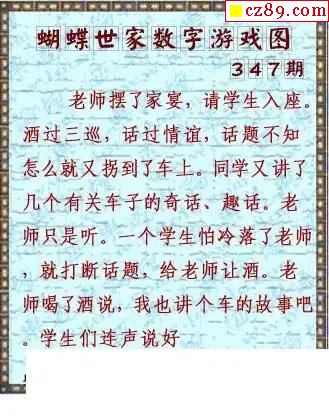 cz89.com
蝴蝶世家数字游戏图
347期
老师摆了家宴，请学生入座。
酒过三巡，话过情谊，话题不知
怎么就又拐到了车上。同学又讲了
几个有关车子的奇话、趣话。老
师只是听。一个学生怕冷落了老师
，就打断话题，给老师让酒。老
师喝了酒说，我也讲个车的故事吧
。学生们连声说好